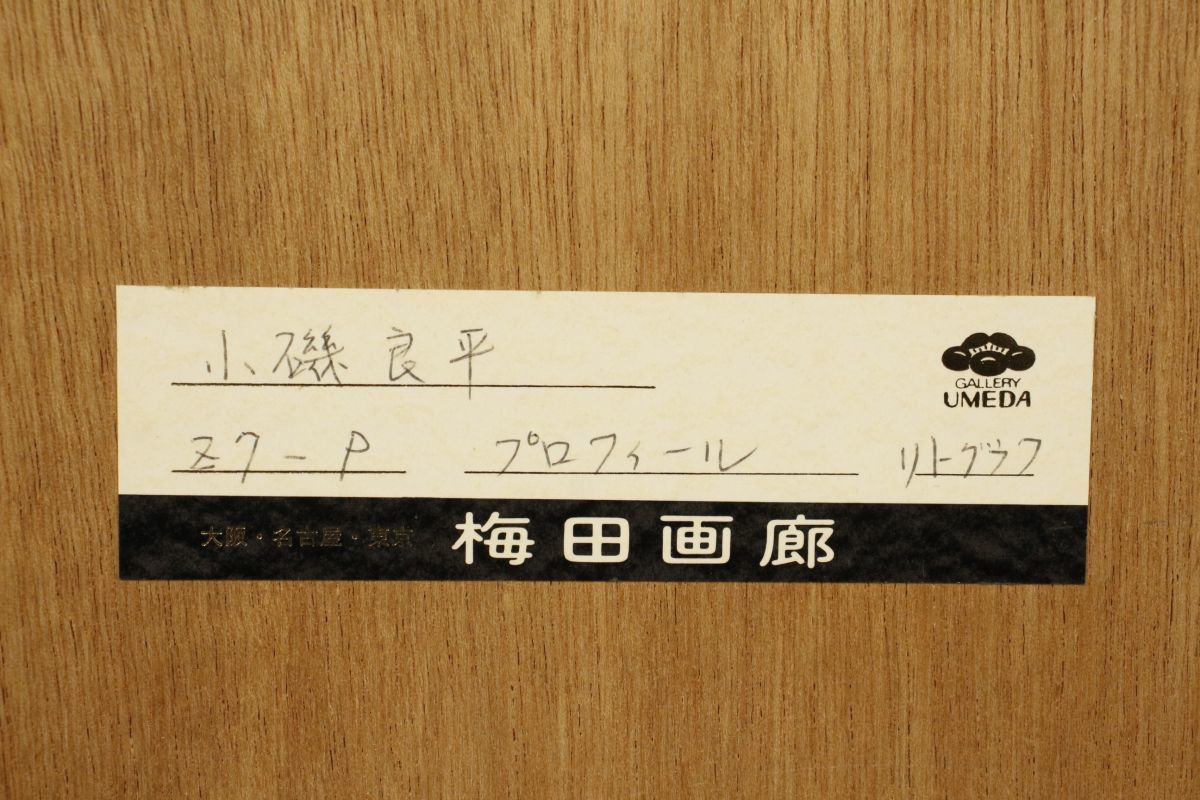 小磯良平
GALLERY
UMEDA
27-P プロフィール リトグラフ
大阪・名古屋・東京 梅田画廊